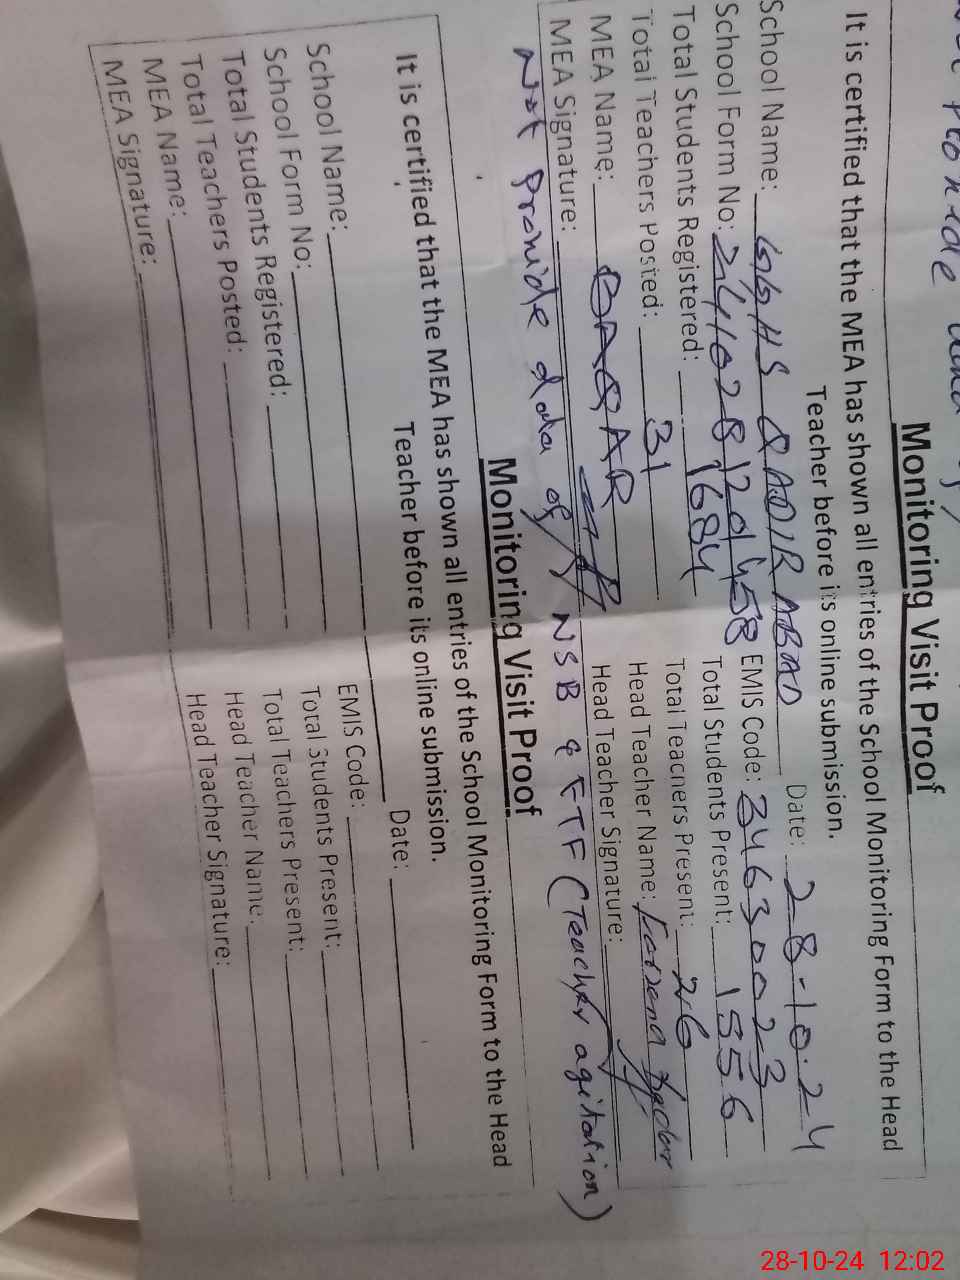 Monitoring Visit Proof
It is certified that the MEA has shown all entries of the School Monitoring Form to the Head
Teacher before its online submission.
School Name: GGHS QADIR ABAD Date: 28-10-24
School Form No: EMIS Code: 34630023
Total Students Registered: 1684 Total Students Present: 1556
Total Teachers Posted: 31 Total Teachers Present: 26
MEA Name: Head Teacher Name:
MEA Signature: Head Teacher Signature:
Not Provide data of NSB & FTF (Teacher agitation)
Monitoring Visit Proof
It is certified that the MEA has shown all entries of the School Monitoring Form to the Head
Teacher before its online submission.
School Name: Date:
School Form No: EMIS Code:
Total Students Registered: Total Students Present:
Total Teachers Posted: Total Teachers Present:
MEA Name: Head Teacher Name:
MEA Signature: Head Teacher Signature:
28-10-24 12:02